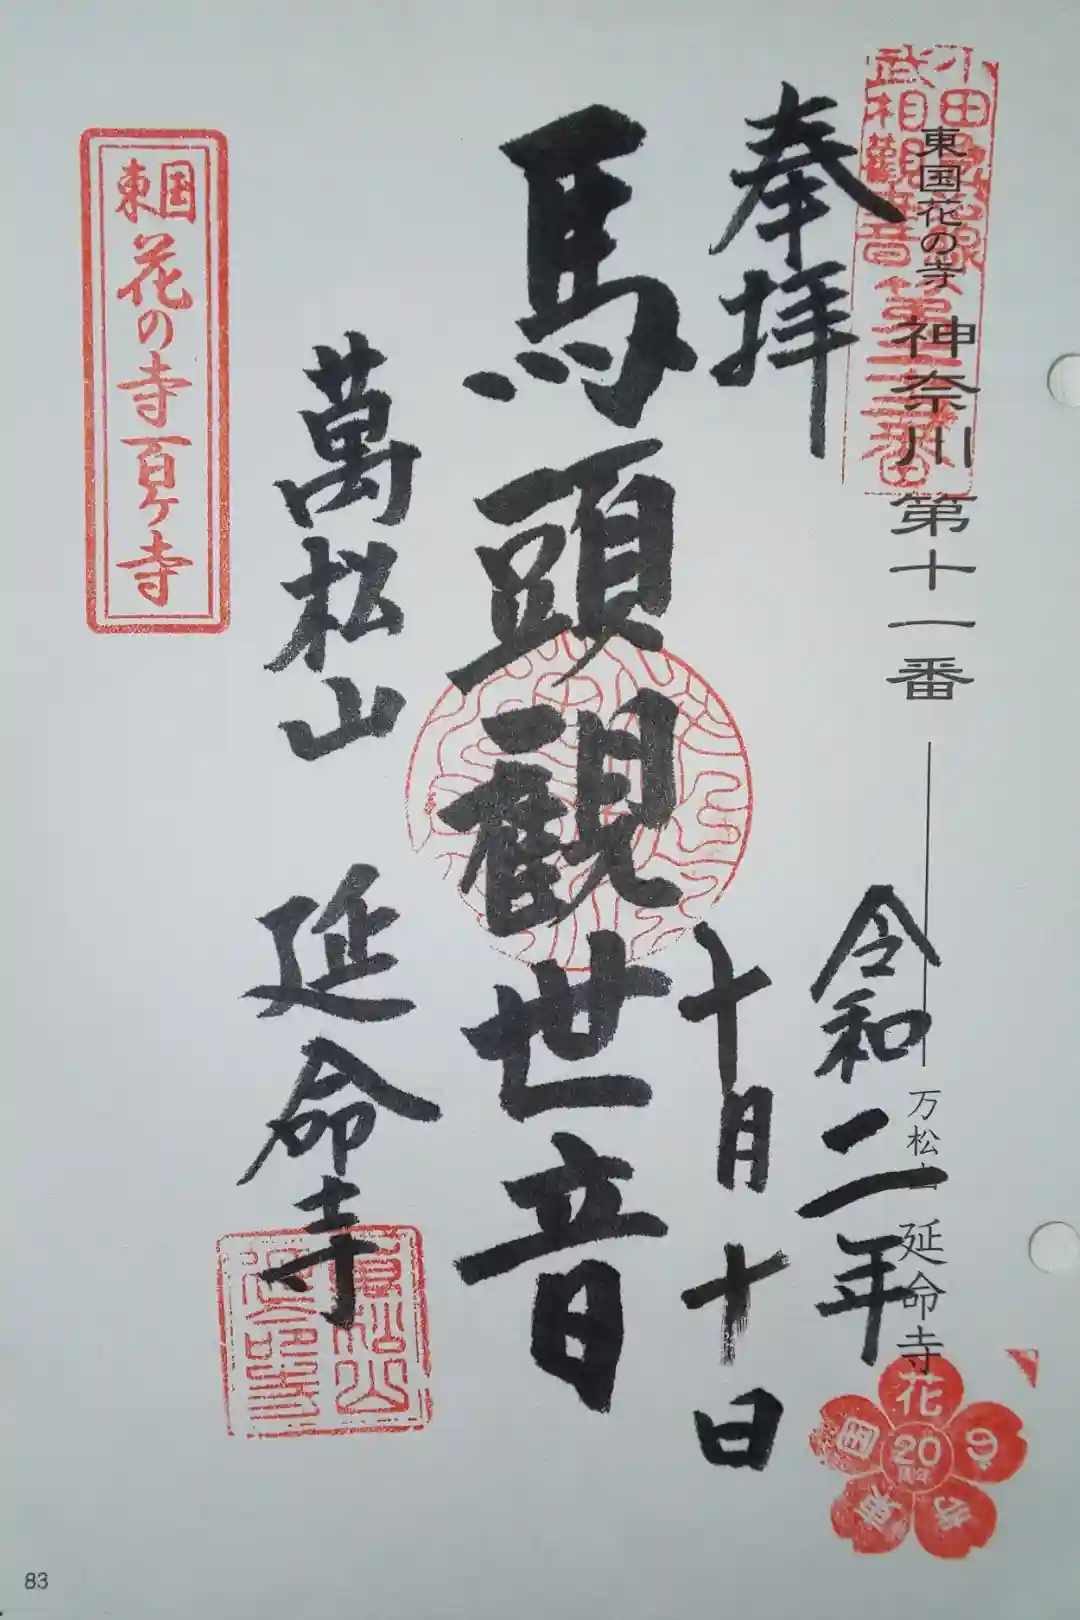 東国花の寺 神奈川 第十一番
万松山 延命寺
小田急沿線
武相観音第三十三番
奉拝
令和二年
十月十日
馬頭観世音
萬松山 延命寺
東国
花の寺百ヶ寺
萬松山
延命寺
東国花の寺
20
周年
83